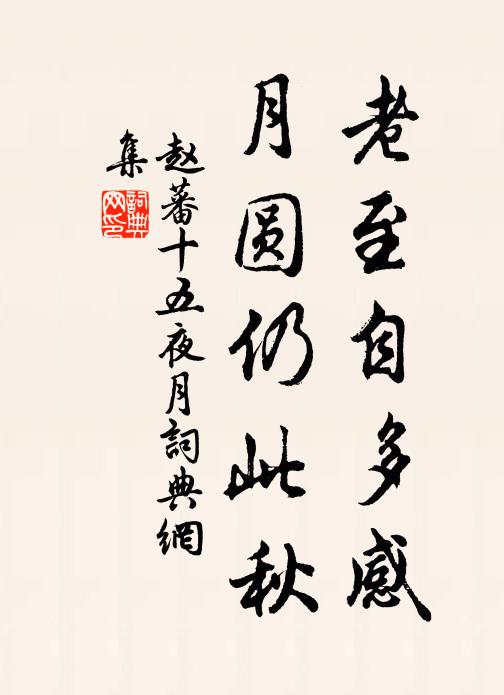 老至自多感
月圆仍此秋
赵蕃十五夜月詞典網
集
詞典
网印